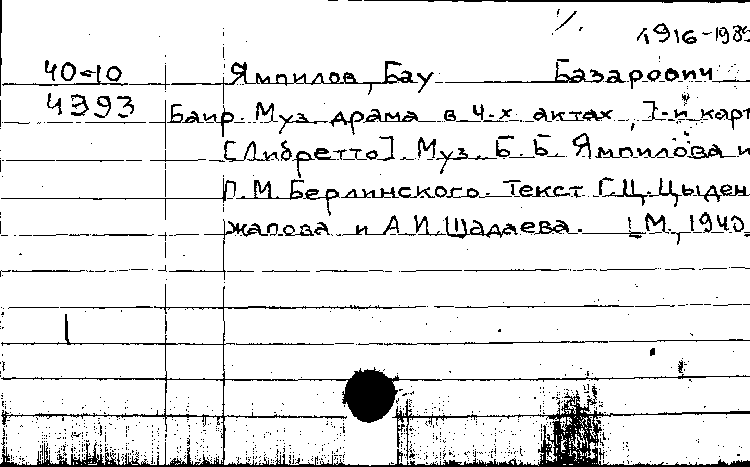 1916-1989
40-10 Ямпилов, Бау Базарович
4393 Баир. Муз. драма в 4-х актах, 7-и карт
[Либретто]. Муз. Б. Б. Ямпилова и
П. М. Берлинского. Текст Г. Ц. Цыден
жапова и А. И. Шадаева. [М., 1940